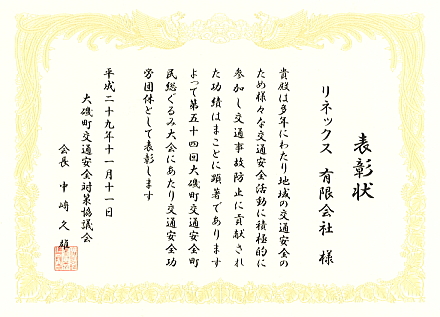 表彰状
リネックス 有限会社 様
貴殿は多年にわたり地域の交通安全の
ため様々な交通安全活動に積極的に
参加し交通事故防止に貢献され
た功績はまことに顕著であります
よって第五十四回大磯町交通安全町
民総ぐるみ大会にあたり交通安全功
労団体として表彰します
平成二十九年十一月十一日
大磯町交通安全対策協議会
会長 中崎久雄